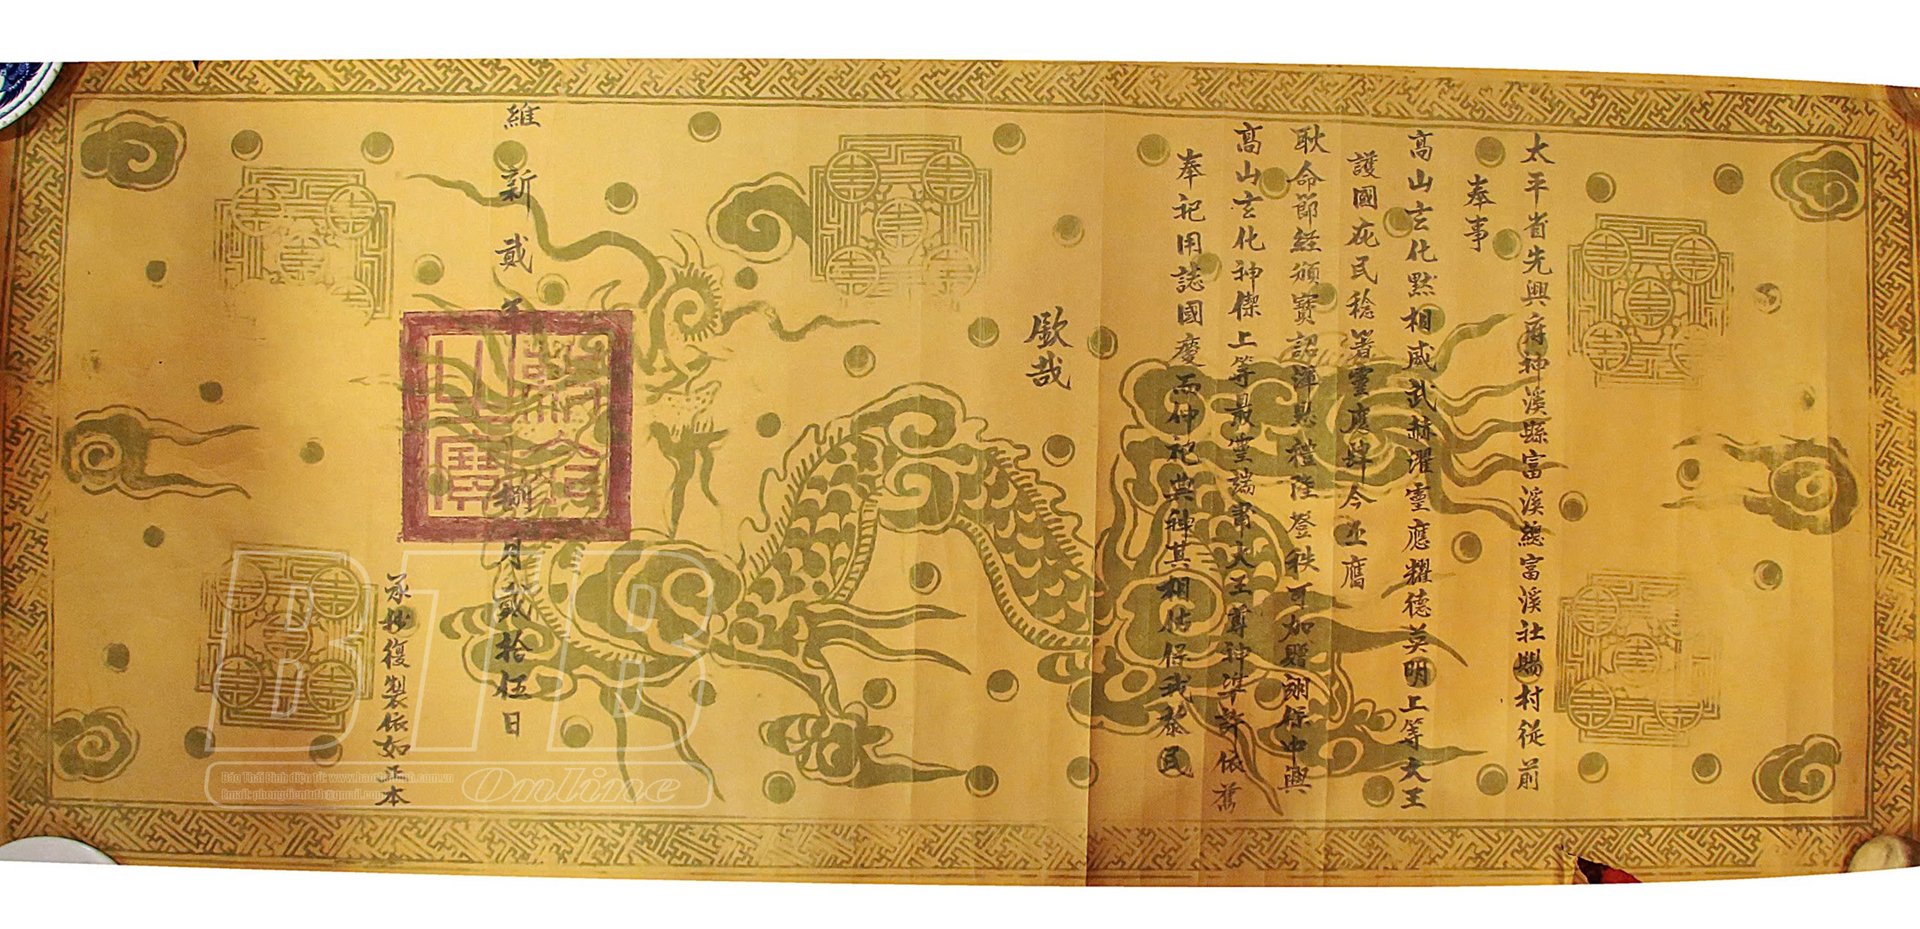 太平省先興府神溪縣富溪總富溪社村從前
奉事
高山玄化黙相威武赫濯靈應耀德英明上等大王
護國庇民稔著靈應肆今丕膺
耿命節經頒寶詔渾恩禮陞登秩可加贈翊保中興
高山玄化神傑上等最靈端肅大王尊神準許依舊
奉祀用誌國慶而伸祀典神其相佑保我黎民
欽哉
維新貳年捌月貳拾伍日
承抄復製依如正本
BTB
Online
Báo Thái Bình điện tử: www.baothaibinh.com.vn
Email: phongdientutb@gmail.com